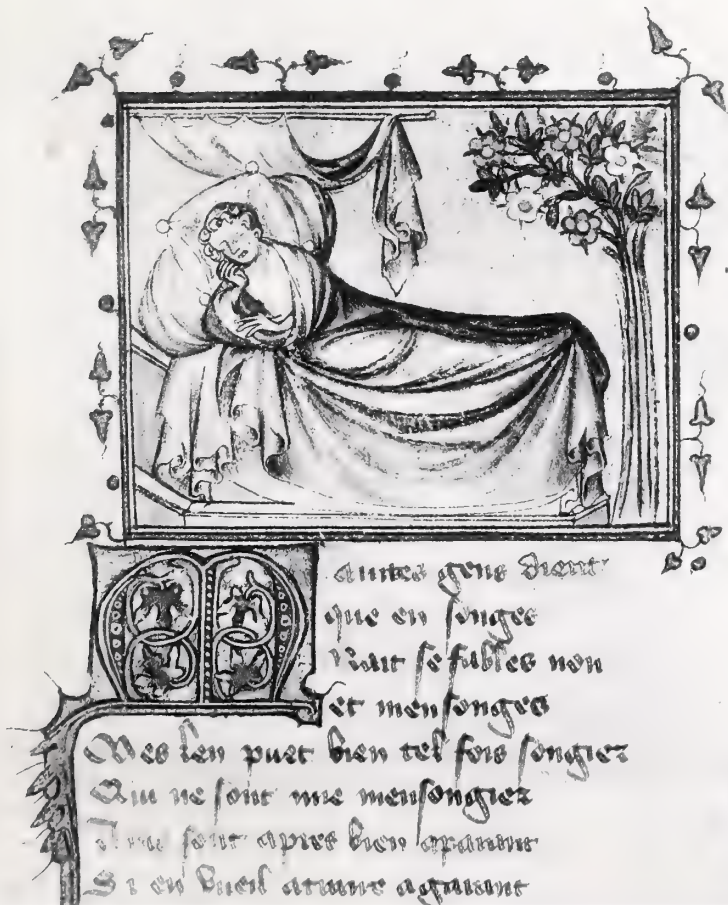 Maintes gens dient
que en songes
Nait se fables non
et mensonges
Mes len puet bien tel fois songier
Qui ne sont mie mensongier
Ains sont apres bien aparant
Si en vueil a garant